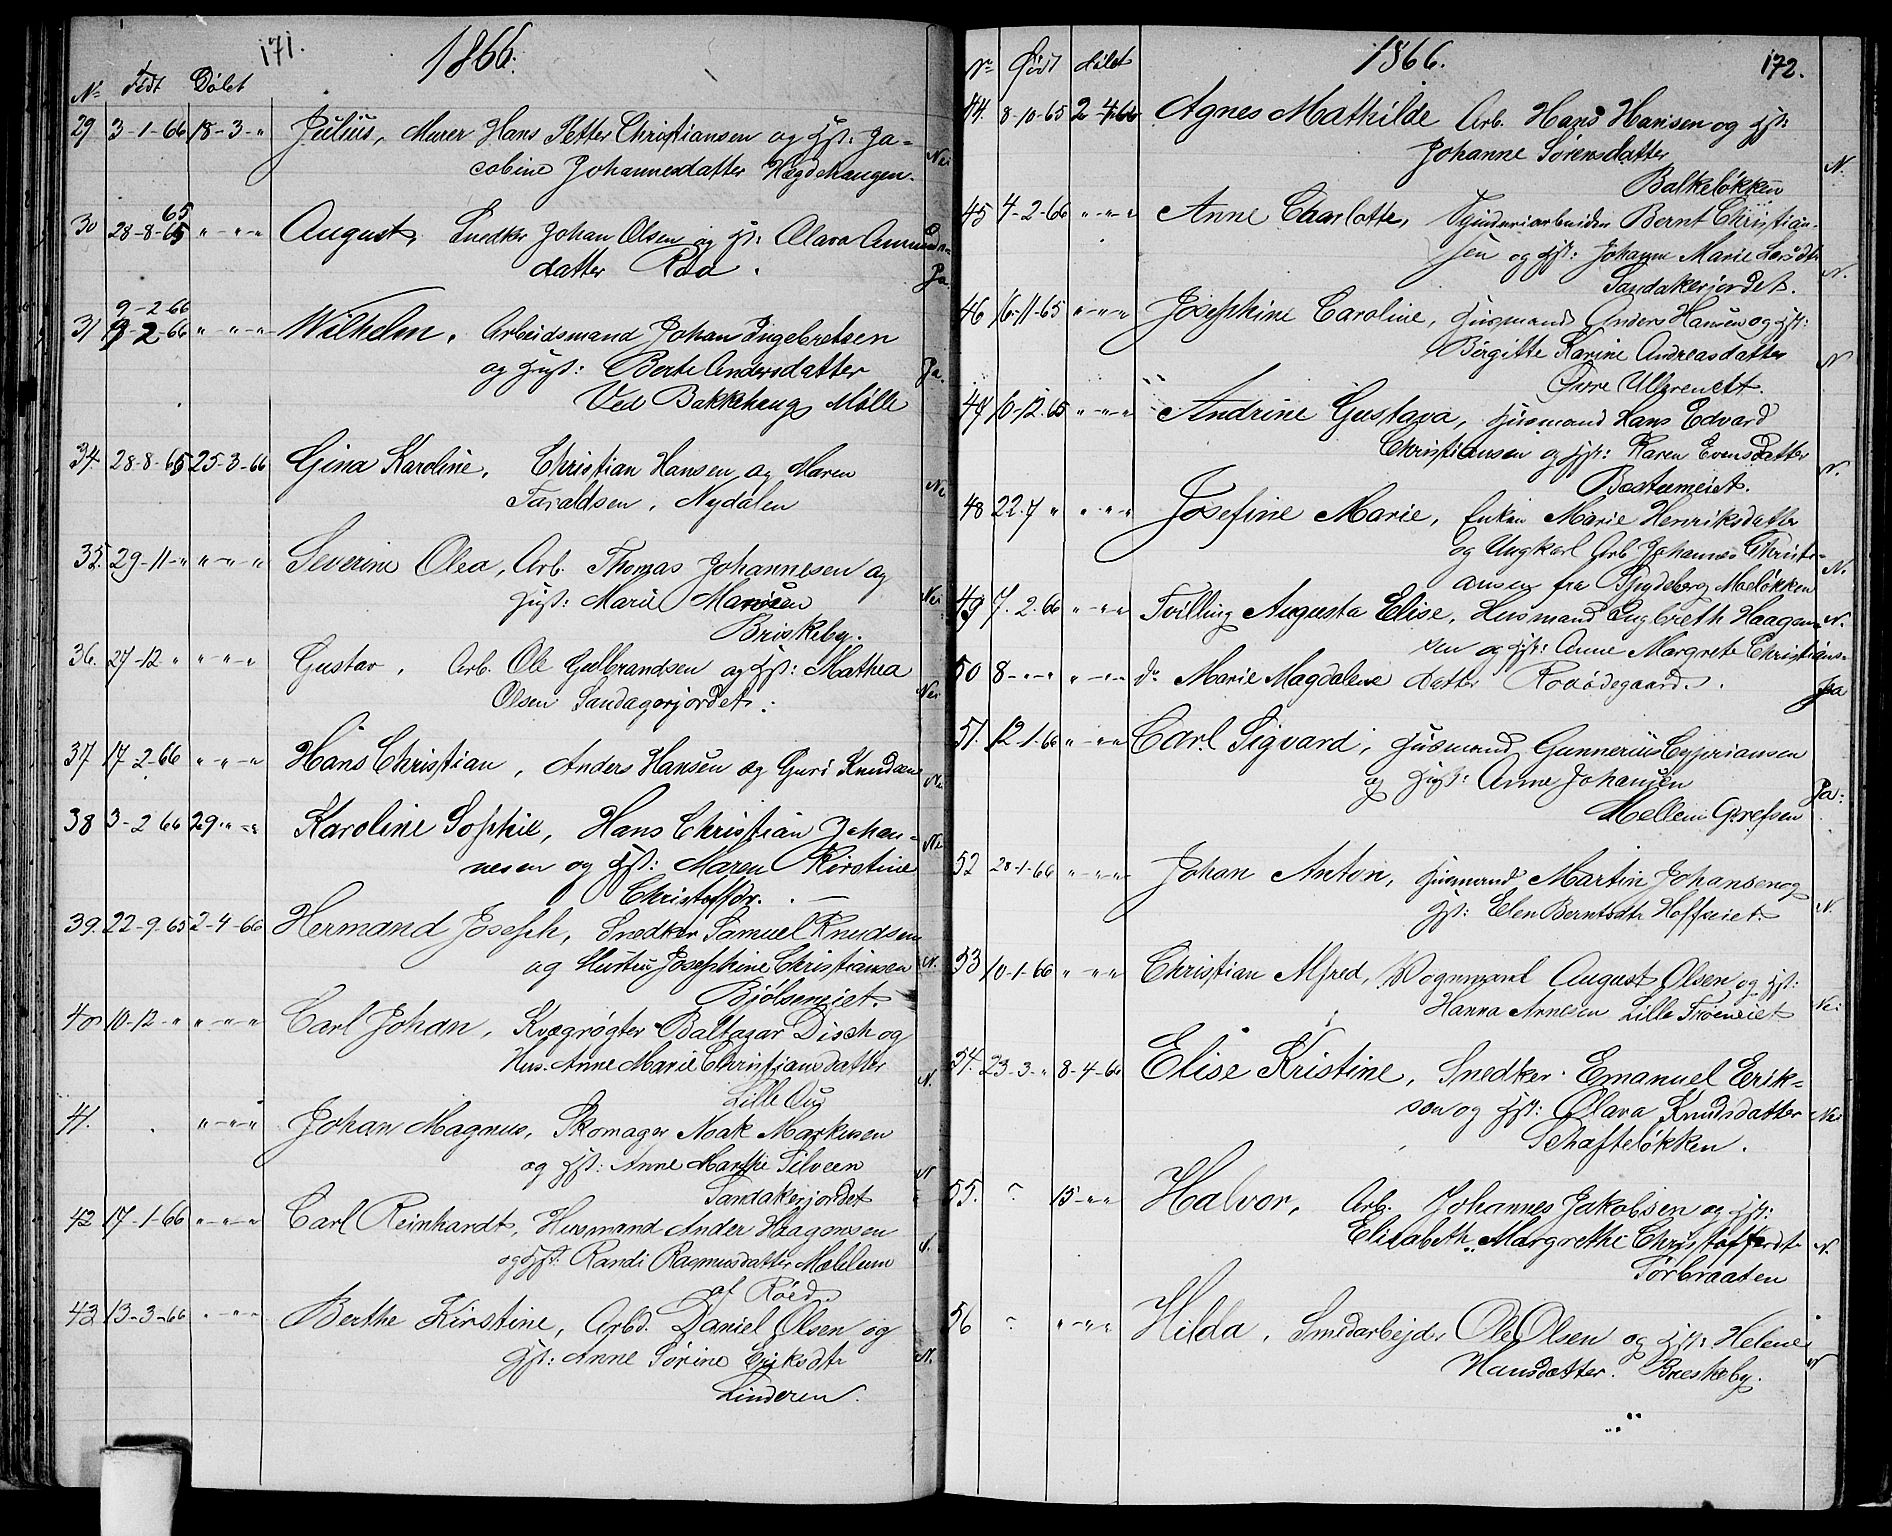 171. 1866.
No Födt Döbt
29 3-1-66 18-3-" Julius, Murer Hans Petter Christiansen og Hst: Ja-
cobine Johannesdatter Hægdehaugen. Nei
30 28-8-65 65 "-"-" August, Snedker Johan Olsen og H: Olava Amund-
datter Raa. Ja
9-2-66
31 9-2-66 "-"-" Wilhelm. Arbeidsmand Johan Ingebretsen
og Hust: Berte Andersdatter Ja.
Ved Bakkehaug Mölle
34. 28-8-65 25-3-66 Gina Karoline, Christian Hansen og Maren
Taraldsen, Nydalen Nei
35. 29-11-" "-"-" Severine Olea, Arb. Thomas Johannesen og
Hust: Marie Nei
Briskeby.
36. 27-12 " "-"-" Gustav, Arb. Ole Gulbrandsen og Hst: Mathea
Olsen Sandagerjordet. Nei
37 17-2-66 "-"-" Hans Christian, Anders Hansen og Guri Knudsen Nei
38 3-2 66 29"-" Karoline Sophie, Hans Christian Johan-
nesen og Hst: Maren Kirstine Nei
Christoffdr. —
39. 22-9-65 2-4-66 Hermand Joseph, Snedker Samuel Knudsen
og Hustru Josephine Christiansen N.
Bjölseneiet.
40 10-12-" "-"-" Carl Johan, Kvægrögter Baltazar Disch og
Hus. Anne Marie Christiansdatter N.
Lille
41. "-"-" Johan Magnus, Skomager Noak Markusen
og Hst: Anne Marthe Silveen N
Sandakerjordet
42 17-1-66 "-"-" Carl Reinhardt, Husmand Ander Haagensen
og Hst: Randi Rasmusdatter Mellem N.
af Röed.
43 13-3-66 "-"-" Berthe Kirstine, Arbd. Daniel Olsen og
Hst: Anne Sörine Eriksdtr N.
Linderen.
1866. 172.
No Födt döbt
44. 8-10-65 2-4-66 Agnes Mathilde Arb. Hans Hansen og Hst:
Johanne Sörensdatter N.
Balkelökken
45 4-2-66 "-"-" Anne Charlotte, Bernt Christian-
sen og Hst: Johanne Marie Larsdtr N.
Sandakerjordet.
46 16-11-65 "-"-" Josephine Caroline, Husmand Anders Hansen og Hst:
Birgitte Karine Andreasdatter N
Övre Ullereneie.
47 10-12-65 "-"-" Andrine Gustava, Husmand Hans Edvard
Christiansen og Hst: Karen Evensdatter N.
48 22-7 " "-"-" Josefine Marie, Enken Marie Henriksdatter
og Ungkarl Arb Johannes Christi-
ansen fra Spydeberg N.
49 7-2-66 "-"-" Tvilling Augusta Elise, Husmand Engbreth Haagen- N.
sen og Hst: Anne Margrete Christians-
50 8-"-" "-"-" do Marie Magdalene datter Ja
51. 12-1-66 "-"-" Carl Sigvard, Husmand Gunnerius Cyprianson
og Hust: Anne Johansen Ja.
Mellem Grefsen
52 28-1-66 "-"-" Johan Anton, Husmand Martin Johansen og
Hst: Elen Berntsdtr Hoffseiet. N.
53 10-1-66 "-"-" Christian Alfred, Vognmand August Olsen og Hst:
Hanna Arnesen Lille Fröeneiet Nei
54. 23-3-" 8-4-66 Elise Kristine, Snedker Emanuel Erik-
sen og Hst: Olava Knudsdatter Nei
Schafteløkken.
55. 15-"-" Halvor, Arb. Johannes Jakobsen og Hst:
Elisabeth Margrethe Christoffersdtr N.
Sörbraaten
56 "-"-" Hilda, Smedarbejd. Ole Olsen og Hst: Helene
Hansdatter. Breskeby. N